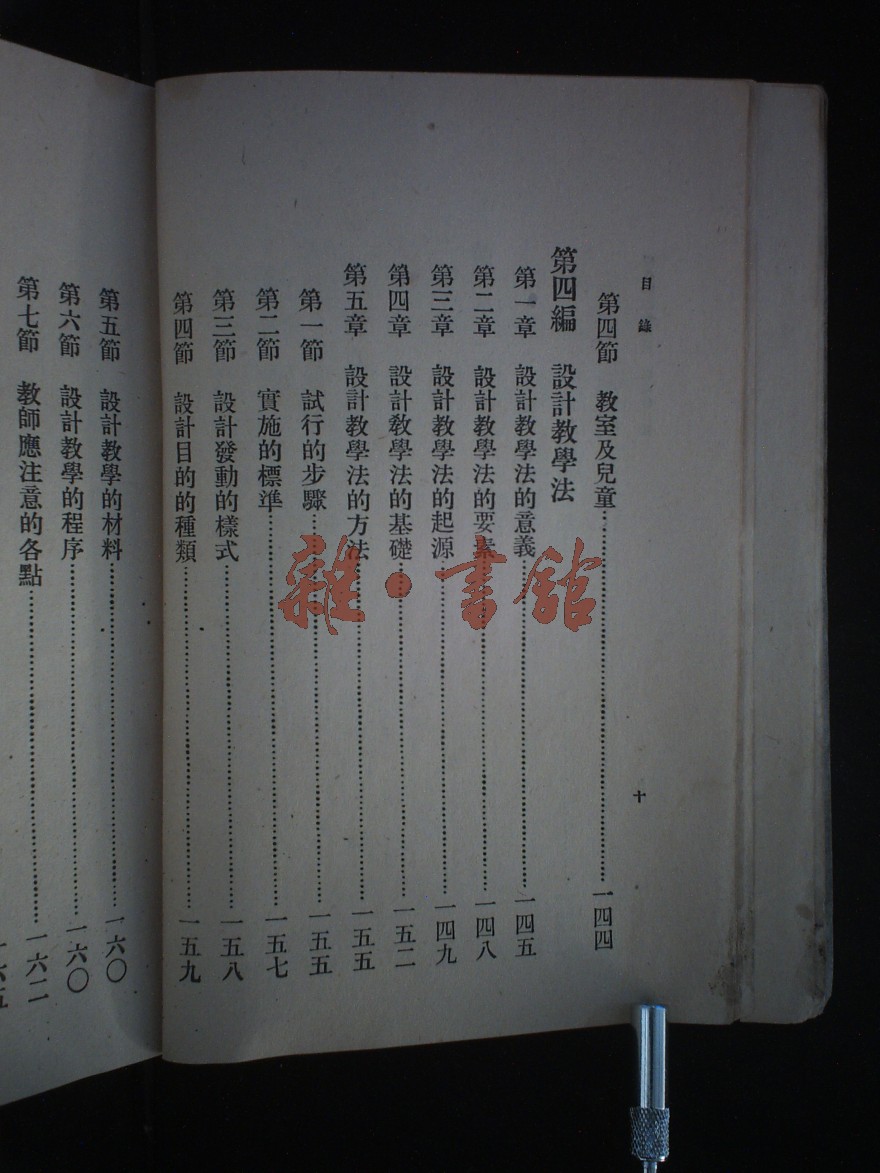 目錄
十
第四節 教室及兒童……一四四
第四編 設計教學法
第一章 設計教學法的意義……一四五
第二章 設計教學法的要素……一四八
第三章 設計教學法的起源……一四九
第四章 設計教學法的基礎……一五二
第五章 設計教學法的方法……一五五
第一節 試行的步驟……一五五
第二節 實施的標準……一五七
第三節 設計發動的樣式……一五八
第四節 設計目的的種類……一五九
第五節 設計教學的材料……一六〇
第六節 設計教學的程序……一六〇
第七節 教師應注意的各點……一六二
一六五
雜·書館